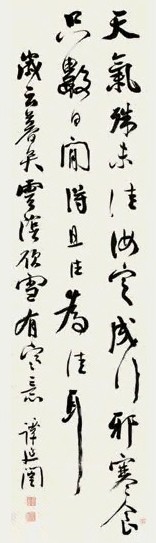 天氣殊未佳汝定成行邪寒食
只數日間得且住為佳耳
歲云暮矣雲陰欲雪有寒意 譚延闓